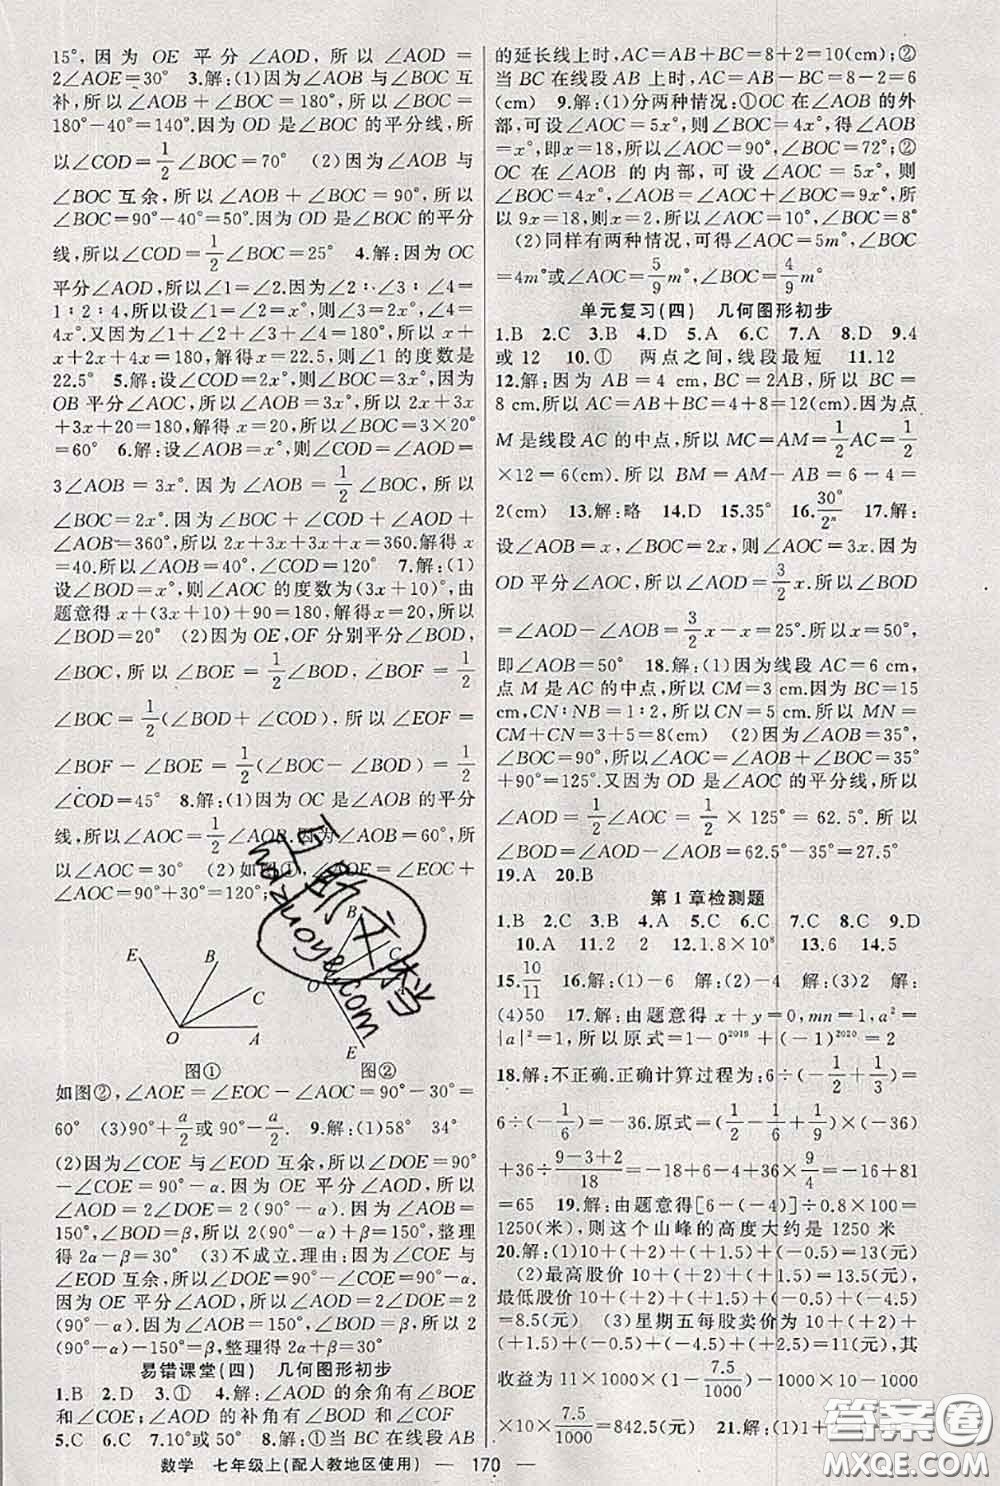 15°,因为 OE 平分∠AOD,所以∠AOD=
2∠AOE=30° 3.解:(1)因为∠AOB与∠BOC互
补,所以∠AOB+∠BOC=180°,所以∠BOC=
180°-40°=140°.因为 OD 是∠BOC 的平分线,所
以∠COD=1/2∠BOC=70° (2)因为∠AOB 与
∠BOC 互余,所以∠AOB+∠BOC=90°,所以
∠BOC=90°-40°=50°.因为OD是∠BOC的平分
线,所以∠COD=1/2∠BOC=25° 4.解:因为 OC
平分∠AOD,所以∠1=∠2.因为∠1:∠3:∠4=
1:2:4,所以设∠1=∠2=x°,则∠3=2x°,∠4=
4x°.又因为∠1+∠2+∠3+∠4=180°,所以x+
x+2x+4x=180,解得x=22.5,所以∠1的度数是
22.5° 5.解:设∠COD=2x°,则∠BOC=3x°,因为
OB平分∠AOC,所以∠AOB=3x°,所以2x+3x
+3x+20=180,解得 x=20,所以∠BOC=3×20°
=60° 6.解:设∠AOB=x°,所以∠COD=∠AOD=
3∠AOB=3x°.因为∠AOB=1/2∠BOC,所以
∠BOC=2x°.因为∠BOC+∠COD+∠AOD+
∠AOB=360°,所以2x+3x+3x+x=360.解得x=
40.所以∠AOB=40°,∠COD=120° 7.解:(1)
设∠BOD=x°,则∠AOC的度数为(3x+10)°,由
题意得x+(3x+10)+90=180,解得x=20,所以
∠BOD=20° (2)因为OE,OF 分别平分∠BOD,
∠BOC,所以∠BOE=1/2∠BOD,∠BOF=1/2
∠BOC=1/2(∠BOD+∠COD),所以∠EOF=
∠BOF-∠BOE=1/2(∠BOC-∠BOD)=1/2
∠COD=45° 8.解:(1)因为OC是∠AOB的平分
线,所以∠AOC=1/2∠AOB.因为∠AOB=60°,所
以∠AOC=30° (2)如图①,∠AOE=∠EOC+
∠AOC=90°+30°=120°;
E B C O A
B C O E
图① 图②
如图②,∠AOE=∠EOC-∠AOC=90°-30°=
60° (3)90°+a/2或90°-a/2. 9.解:(1)58° 34°
(2)因为∠COE与∠EOD互余,所以∠DOE=90°
-∠COE=90°-α.因为 OE 平分∠AOD,所以
∠AOD=2∠DOE=2(90°-α).因为∠AOB=
150°,∠BOD=β,所以2(90°-α)+β=150°,整理
得2α-β=30° (3)不成立.理由:因为∠COE与
∠EOD互余,所以∠DOE=90°-∠COE=90°-α.
因为 OE 平分∠AOD,所以∠AOD=2∠DOE=2
(90°-α).因为∠AOB=150°,∠BOD=β,所以2
(90°-α)-β=150°,整理得2α+β=30°
易错课堂(四) 几何图形初步
1.B 2.D 3.① 4.解:∠AOD的余角有∠BOE
和∠COE;∠AOD的补角有∠BOD和∠COF
5.C 6.C 7.10°或50° 8.解:①当BC在线段AB
的延长线上时,AC=AB+BC=8+2=10(cm);②
当BC在线段AB上时,AC=AB-BC=8-2=6
(cm) 9.解:(1)分两种情况:①OC在∠AOB的外
部,可设∠AOC=5x°,则∠BOC=4x°,得∠AOB
=x°,即x=18,所以∠AOC=90°,∠BOC=72°;②
OC在∠AOB的内部,可设∠AOC=5x°,则
∠BOC=4x°,∠AOB=∠AOC+∠BOC=9x°,所
以9x=18,则x=2,所以∠AOC=10°,∠BOC=8°
(2)同样有两种情况,可得∠AOC=5m°,∠BOC
=4m°或∠AOC=5/9m°,∠BOC=4/9m°
单元复习(四) 几何图形初步
1.B 2.C 3.B 4.D 5.A 6.C 7.A 8.D 9.4
或12 10.① 两点之间,线段最短 11.12
12.解:因为AB=4 cm,BC=2AB,所以BC=
8 cm.所以AC=AB+BC=4+8=12(cm).因为点
M是线段AC的中点,所以MC=AM=1/2AC=1/2
×12=6(cm).所以BM=AM-AB=6-4=
2(cm) 13.解:略 14.D 15.35° 16.30°/2ⁿ 17.解:
设∠AOB=x,∠BOC=2x,则∠AOC=3x.因为
OD平分∠AOC,所以∠AOD=3/2x.所以∠BOD
=∠AOD-∠AOB=3/2x-x=25°.所以x=50°,
即∠AOB=50° 18.解:(1)因为线段AC=6 cm,
点M是AC的中点,所以CM=3 cm.因为BC=15
cm,CN:NB=1:2,所以CN=5 cm.所以MN=
CM+CN=3+5=8(cm) (2)因为∠AOB=35°,
∠BOC=90°,所以∠AOC=∠AOB+∠BOC=35°
+90°=125°.又因为OD是∠AOC的平分线,所以
∠AOD=1/2∠AOC=1/2×125°=62.5°.所以
∠BOD=∠AOD-∠AOB=62.5°-35°=27.5°
19.A 20.B
第1章检测题
1.B 2.C 3.B 4.A 5.C 6.C 7.C 8.C 9.D
10.A 11.2 2 12.1.8×10⁸ 13.6 14.5
15.10/11 16.解:(1)-6 解:(2)-4 解:(3)2 解:
(4)50 17.解:由题意得x+y=0,mn=1,a²=
|a|²=1,所以原式=1-0²⁰¹⁹+(-1)²⁰²⁰=2
18.解:不正确.正确计算过程为:6÷(-1/2+1/3)=
6÷(-1/6)=-36.原式=(1/2-1/6+1/9)×(-36)
+36÷(9-3+2)/18=-18+6-4+36×9/4=-16+81
=65 19.解:由题意得[6-(-4)]÷0.8×100=
1250(米),则这个山峰的高度大约是1250米
20.解:(1)10+(+2)+(+1.5)+(-0.5)=13(元)
(2)最高股价10+(+2)+(+1.5)=13.5(元),
最低股价10+(+2)+(+1.5)+(-0.5)+(-4.5)
=8.5(元) (3)星期五每股卖价为10+(+2)+
(+1.5)+(-0.5)+(-4.5)+(+2.5)=11(元),其
收益为11×1000×(1-7.5/1000)-1000×10-1000
×10×7.5/1000=842.5(元) 21.解:(1)1+
数学 七年级上(配人教地区使用) — 170 —
互助文档
hdzuoye.com
答案圈
MXQE.COM